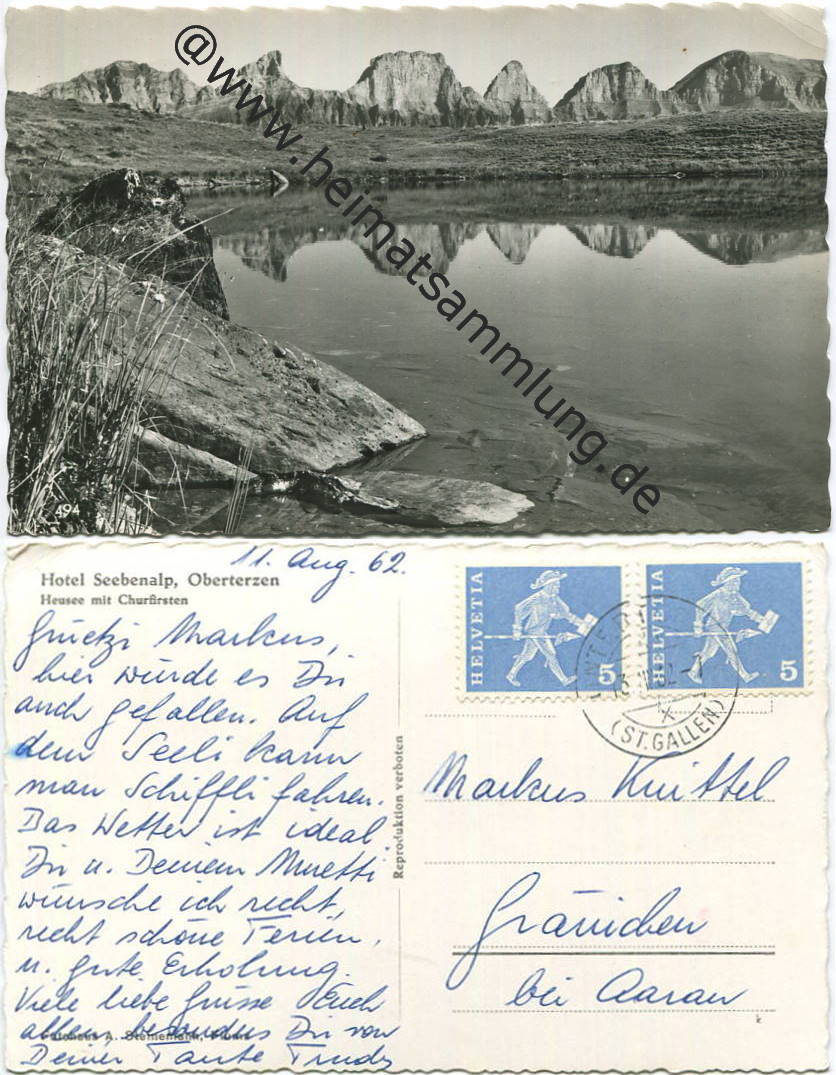 @www.heimatsammlung.de
494
11. Aug. 62.
Hotel Seebenalp, Oberterzen
Heusee mit Churfirsten
Gruetzi Markus,
hier würde es Dir
auch gefallen. Auf
dem Seeli kann
man Schiffli fahren.
Das Wetter ist ideal
Dir u. Deinem Muetti
wünsche ich recht,
recht schöne Ferien,
u. gute Erholung.
Viele liebe Grüsse Euch
allen besonders Dir von
Deiner Tante Trudy
Photohaus A. Steinemann, Flums
Reproduktion verboten
HELVETIA 5
HELVETIA 5
(ST.GALLEN)
Markus Knittel
Gränichen
bei Aarau
k